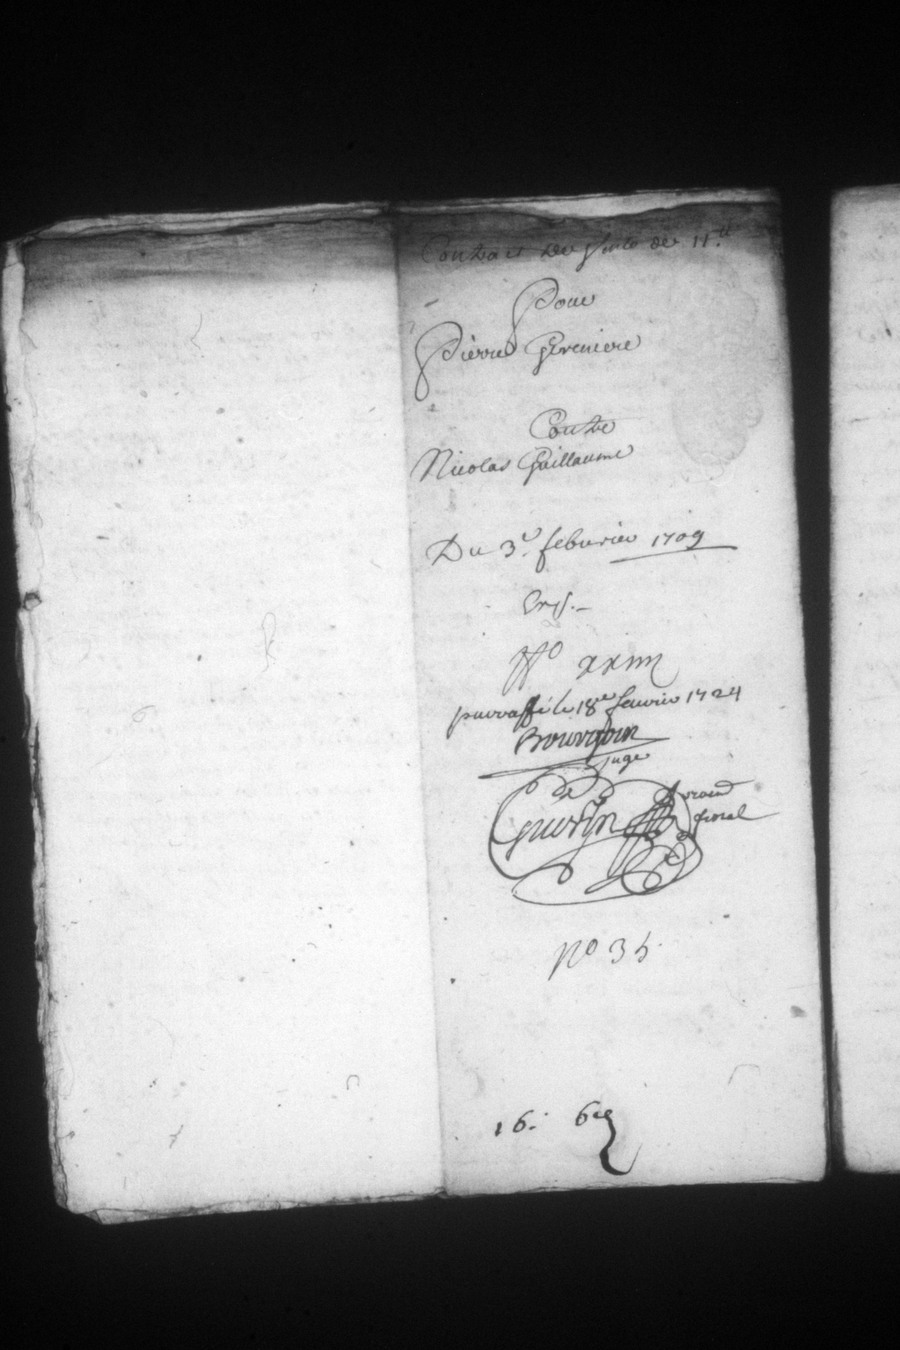 Contract De Vente de 11.tt
Pour
Pierre Greniere
Contre
Nicolas Guillaume
Du 3.e februrier 1709
N.o xxiiii
parraffé le 18me feuvrier 1724
Bourgoin
juge
de
Guestyn
fiscal
No 35.
16: 6